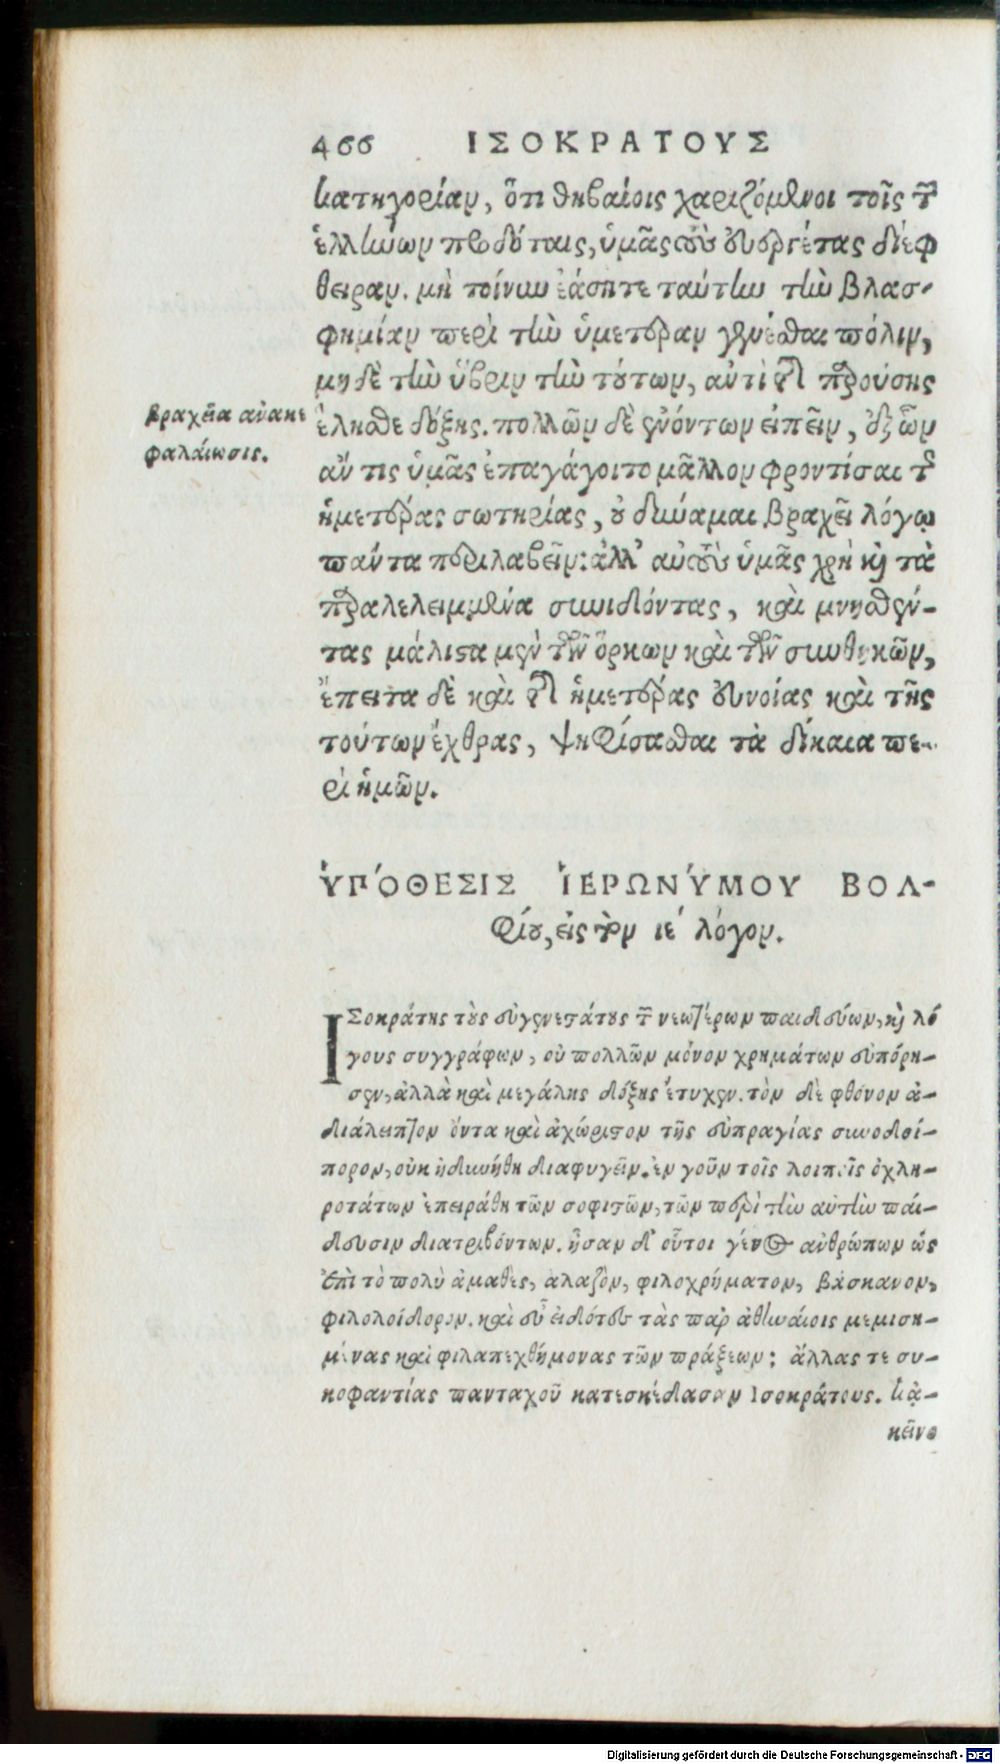 466 ΙΣΟΚΡΑΤΟΥΣ
κατηγορίαν, ὅτι θηβαίοις χαριζόμενοι τοῖς τῶν
ἑλλήνων προδόταις, ὑμᾶς τοὺς εὐεργέτας διέφ
θειραν. μὴ τοίνυν ἐάσητε ταύτην τὴν βλασ-
φημίαν περὶ τὴν ὑμετέραν γενέσθαι πόλιν,
μηδὲ τὴν ὕβριν τὴν τούτων, ἀντὶ τῆς παρούσης
ἕλησθε δόξης. πολλῶν δὲ ἐνόντων εἰπεῖν, ἐξ ὧν
βραχεῖα ἀνακε
φαλαίωσις.
ἄν τις ὑμᾶς ἐπαγάγοιτο μᾶλλον φροντίσαι τῆς
ἡμετέρας σωτηρίας, οὐ δύναμαι βραχεῖ λόγῳ
πάντα περιλαβεῖν: ἀλλ' αὐτοὺς ὑμᾶς χρὴ καὶ τὰ
παραλελειμμένα συνιδόντας, καὶ μνησθέν-
τας μάλιστα μὲν τῶν ὅρκων καὶ τῶν συνθηκῶν,
ἔπειτα δὲ καὶ τῆς ἡμετέρας εὐνοίας καὶ τῆς
τούτων ἔχθρας, ψηφίσασθαι τὰ δίκαια πε-
ρὶ ἡμῶν.
ὙΠΌΘΕΣΙΣ ἹΕΡΩΝΎΜΟΥ ΒΟΛ-
φίου, εἰς τὸν ιε΄ λόγον.
ΙΣοκράτης τοὺς εὐγενεστάτους τῶν νεωτέρων παιδεύων, καὶ λό
γους συγγράφων, οὐ πολλῶν μόνον χρημάτων εὐπόρη-
σεν, ἀλλὰ καὶ μεγάλης δόξης ἔτυχεν. τὸν δὲ φθόνον ἀ-
διάλειπτον ὄντα καὶ ἀχώριστον τῆς εὐπραγίας συνοδοί-
πορον, οὐκ ἠδυνήθη διαφυγεῖν. ἐν γοῦν τοῖς λοιποῖς ὀχλη-
ροτάτων ἐπειράθη τῶν σοφιστῶν, τῶν περὶ τὴν αὐτὴν παί-
δευσιν διατριβόντων. ἦσαν δ' οὗτοι γένος ἀνθρώπων ὡς
ἐπὶ τὸ πολὺ ἀμαθὲς, ἀλαζὸν, φιλοχρήματον, βάσκανον,
φιλολοίδορον. καὶ εὖ εἰδότες τὰς παρ' ἀθηναίοις μεμιση-
μένας καὶ φιλαπεχθήμονας τῶν πράξεων: ἄλλας τε συ-
κοφαντίας πανταχοῦ κατεσκέδασαν Ισοκράτους. κἀ-
κεῖνο
Digitalisierung gefördert durch die Deutsche Forschungsgemeinschaft - DFG